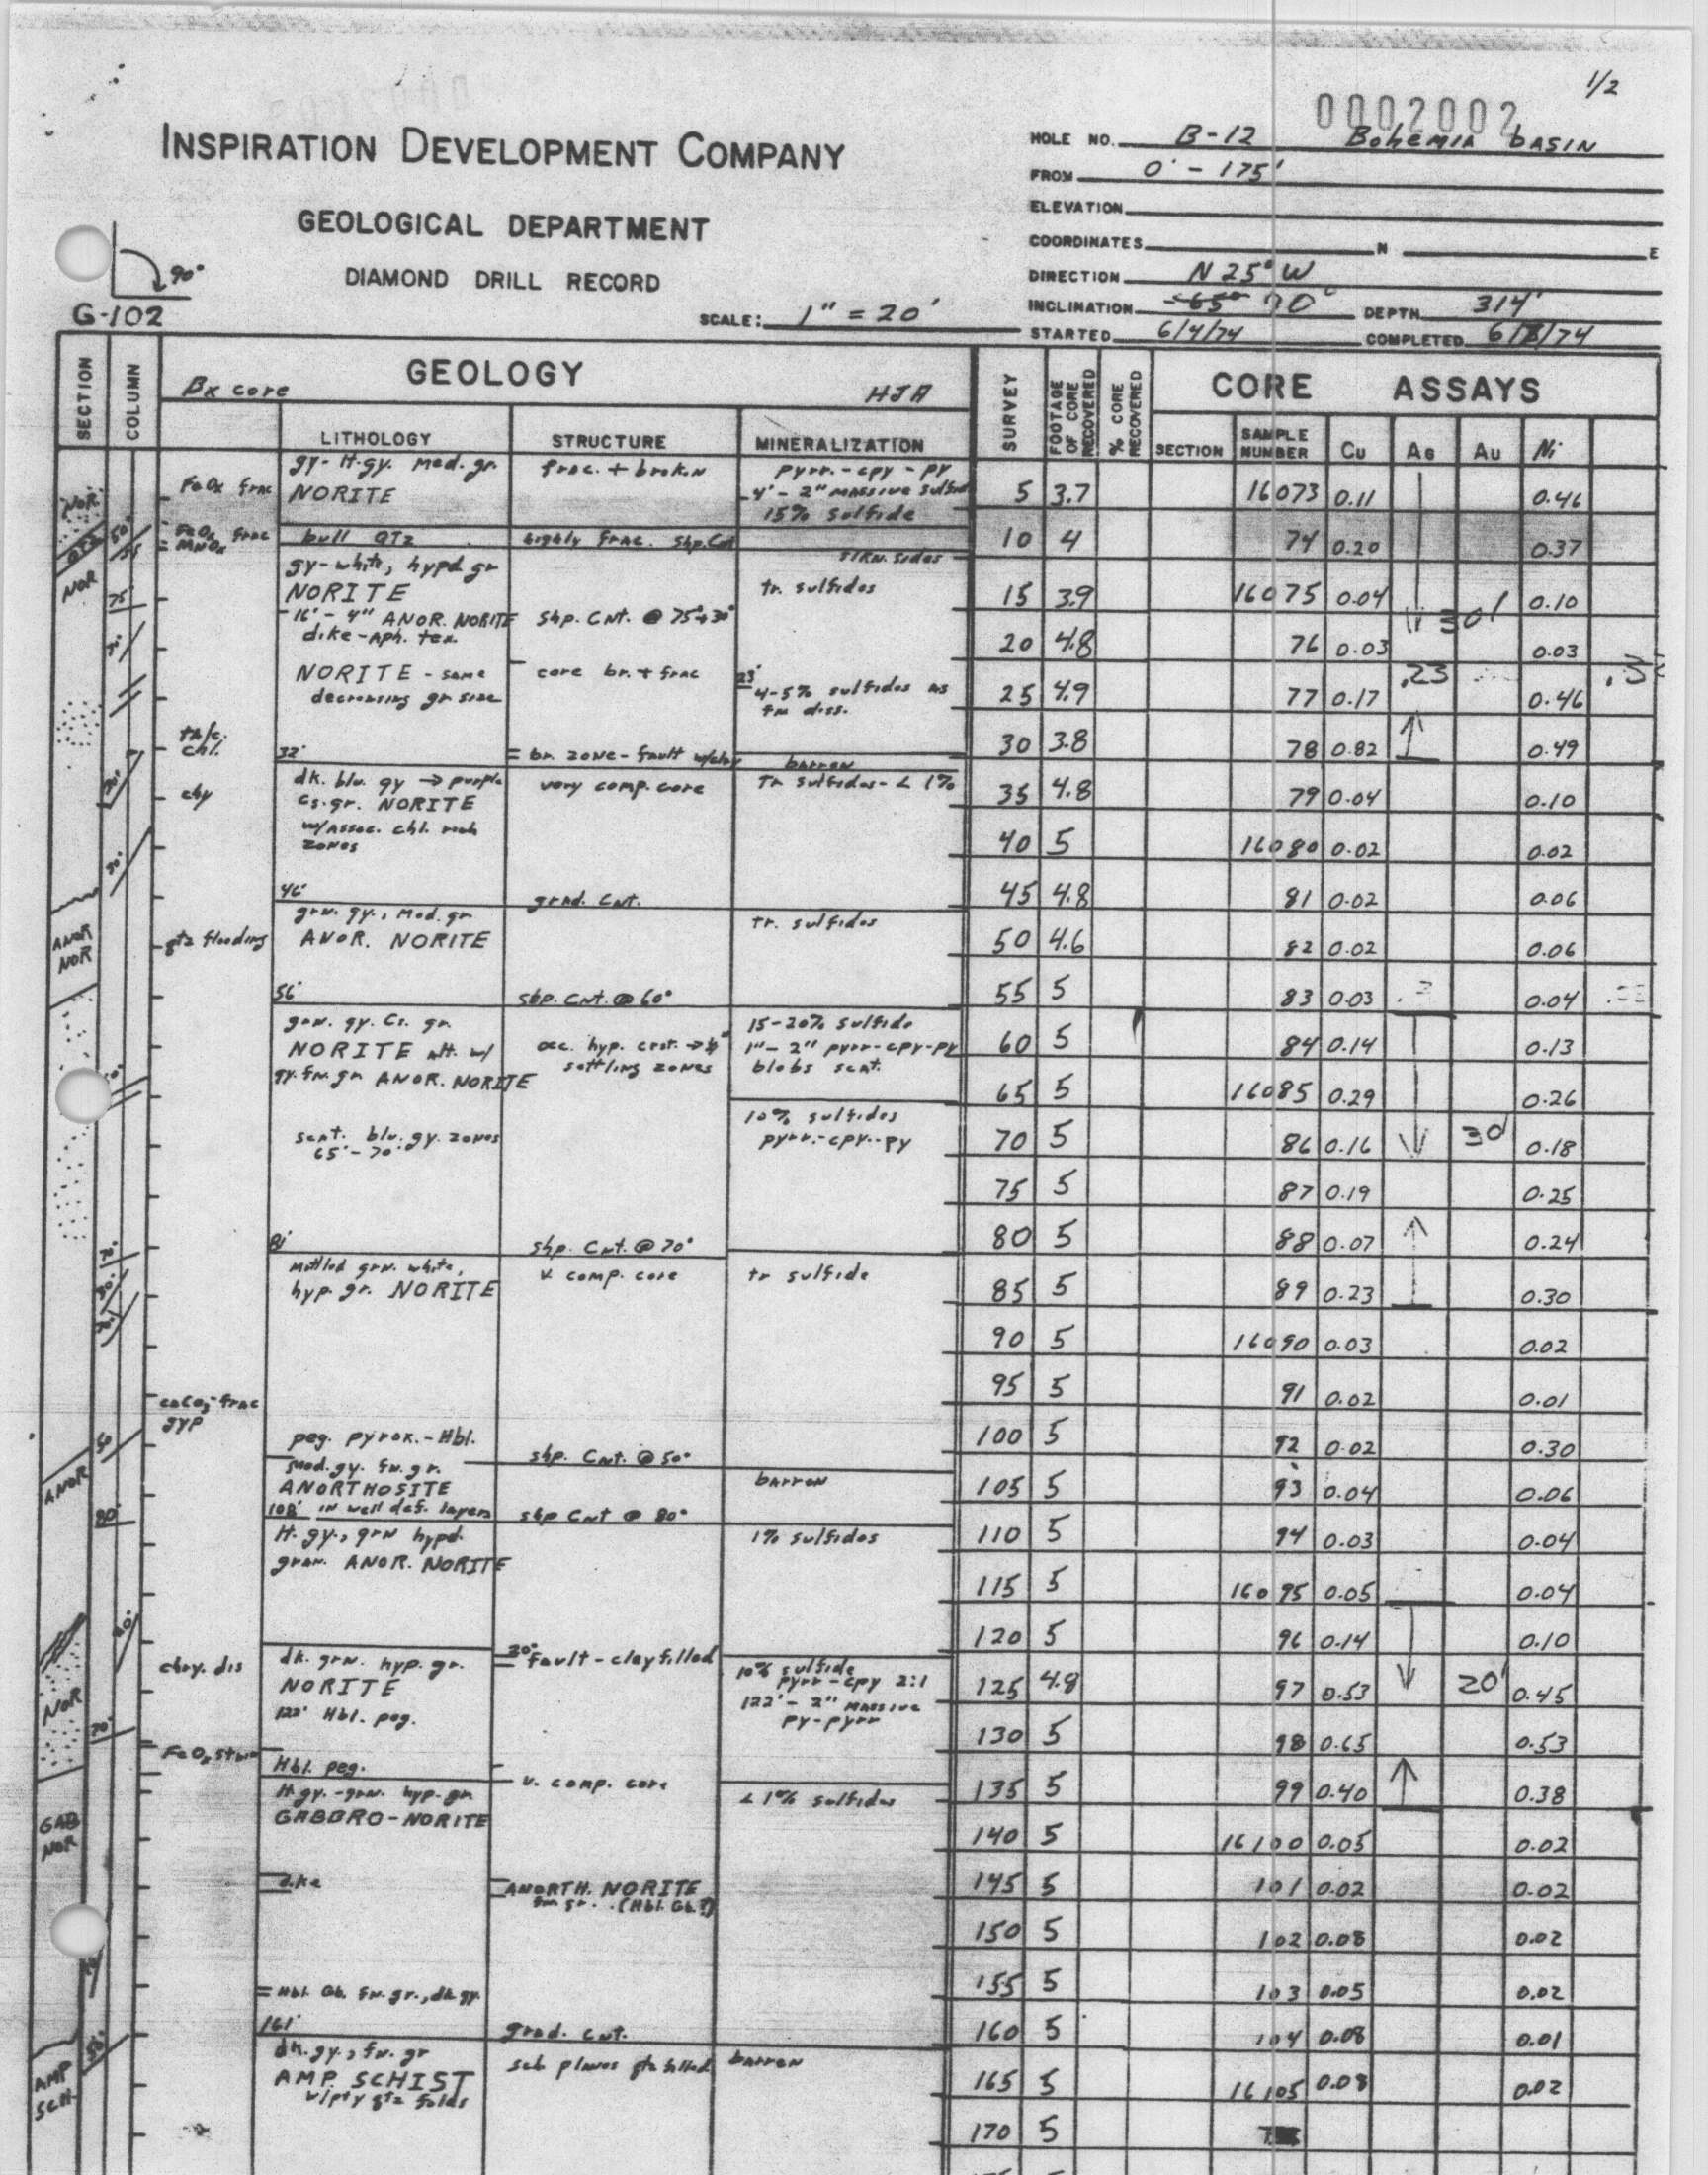 1/2
0002002
INSPIRATION DEVELOPMENT COMPANY
GEOLOGICAL DEPARTMENT
DIAMOND DRILL RECORD
90°
G-102
SCALE: 1" = 20'
HOLE NO. B-12 BOHEMIA BASIN
FROM 0' - 175'
ELEVATION
COORDINATES N E
DIRECTION N 25° W
INCLINATION -65° 70° DEPTH 314'
STARTED 6/4/74 COMPLETED 6/8/74
SECTION COLUMN GEOLOGY SURVEY FOOTAGE OF CORE RECOVERED % CORE RECOVERED CORE ASSAYS
Bx core HJA
LITHOLOGY STRUCTURE MINERALIZATION SECTION SAMPLE NUMBER Cu Ag Au Ni
NOR FeOx frac gy-lt.gy. med. gr. frac. + broken pyrr.-cpy-py
NORITE 4' - 2" massive sulfide 5 3.7 16073 0.11 0.46
15% sulfide
QTZ 50° FeOx frac MnOx bull QTZ highly frac. shp. Cnt 10 4 74 0.20 0.37
NOR gy-white, hypd gr
75° NORITE tr. sulfides 15 3.9 16075 0.04 0.10
16' - 4" ANOR. NORITE shp. Cnt. @ 75°+30° 30'
dike-aph. tex. 20 4.8 76 0.03 0.03
NORITE - same core br. + frac 23' .23
decreasing gr size 4-5% sulfides as fn diss. 25 4.9 77 0.17 0.46
chl. 32' br. zone - fault w/clay barren 30 3.8 78 0.82 0.49
dk. blu. gy → purple very comp. core Tr sulfides - < 1%
cs. gr. NORITE 35 4.8 79 0.04 0.10
w/assoc. chl. rich
zones 40 5 16080 0.02 0.02
46' grad. Cnt. 45 4.8 81 0.02 0.06
ANOR NOR grn. gy., med. gr tr. sulfides
qtz flooding ANOR. NORITE 50 4.6 82 0.02 0.06
56' shp. Cnt. @ 60° 55 5 83 0.03 0.04
grn. gy. cs. gr. 15-20% sulfide
NORITE alt. w/ occ. hyp. crst. 1"-2" pyrr-cpy-py 60 5 84 0.14 0.13
gy. fn. gr ANOR. NORITE settling zones blobs scat.
65 5 16085 0.29 0.26
10% sulfides
scat. blu. gy. zones pyrr.-cpy.-py 70 5 86 0.16 30' 0.18
65'-70'
75 5 87 0.19 0.25
81' shp. Cnt. @ 70° 80 5 88 0.07 0.24
70° mottled grn. white, v. comp. core tr sulfide
hyp. gr. NORITE 85 5 89 0.23 0.30
90 5 16090 0.03 0.02
CaCO3-frac 95 5 91 0.02 0.01
gyp
50 peg. pyrox.-Hbl. shp. Cnt. @ 50° 100 5 92 0.02 0.30
ANOR med. gy. fn. gr.
ANORTHOSITE barren 105 5 93 0.04 0.06
80° 108' in well def. layers shp Cnt @ 80°
lt. gy., grn hypd. 1% sulfides 110 5 94 0.03 0.04
gran. ANOR. NORITE
115 5 16095 0.05 0.04
120 5 96 0.14 0.10
dk. grn. hyp. gr. 30° fault - clay filled 10% sulfide
chry. dis NORITE pyrr-cpy 2:1 125 4.8 97 0.53 20' 0.45
NOR 122' Hbl. peg. 122' - 2" massive
70° py-pyrr 130 5 98 0.65 0.53
FeOx stain Hbl. peg.
lt. gy.-grn. hyp. gr v. comp. core < 1% sulfides 135 5 99 0.40 0.38
GAB NOR GABBRO-NORITE
140 5 16100 0.05 0.02
dike ANORTH. NORITE 145 5 101 0.02 0.02
fn gr. (Hbl. Gb.?)
150 5 102 0.08 0.02
Hbl. Gb. fn. gr., dk gy. 155 5 103 0.05 0.02
161' grad. cnt. 160 5 104 0.08 0.01
AMP SCH. 50° dk. gy., fn. gr sch planes qtz filled barren
AMP. SCHIST 165 5 16105 0.08 0.02
w/pty qtz folds
170 5